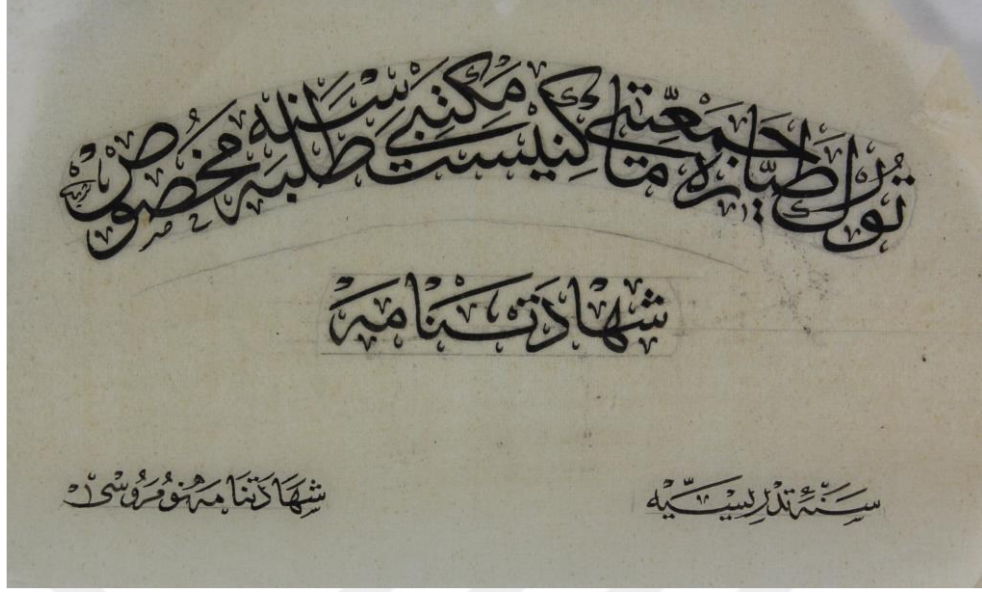 تورك طیاره جمعیتی ماكنیست مكتبی طلبه سنه مخصوص
شهادتنامه
سنۀ تدریسیه
شهادتنامه نومروسی